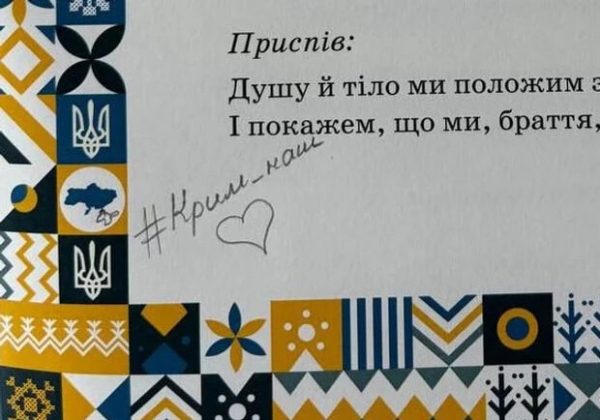 Приспів:
Душу й тіло ми положим з
І покажем, що ми, браття,
#Крим_наш